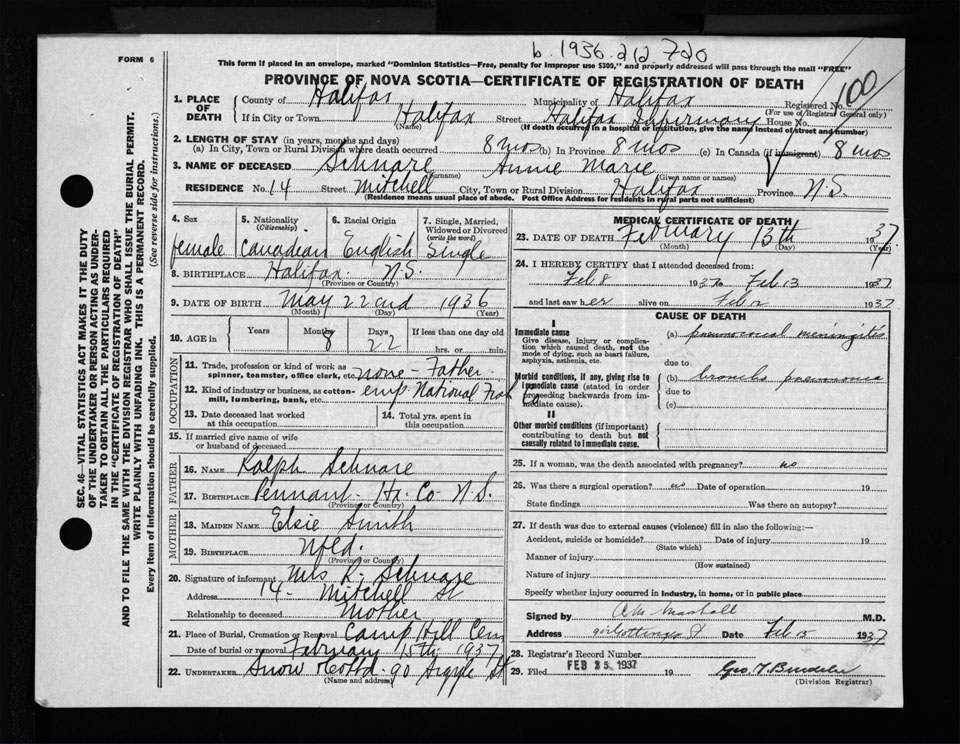 b. 1936. 212 720
FORM 6
This form if placed in an envelope, marked "Dominion Statistics—Free, penalty for improper use $300," and properly addressed will pass through the mail "FREE"
PROVINCE OF NOVA SCOTIA—CERTIFICATE OF REGISTRATION OF DEATH
100
1. PLACE OF DEATH
County of Halifax Municipality of Halifax Registered No.
(For use of Registrar General only)
If in City or Town Halifax Street Halifax Infirmary House No.
(Name) (If death occurred in a hospital or institution, give the name instead of street and number)
2. LENGTH OF STAY (in years, months and days)
(a) In City, Town or Rural Division where death occurred 8 mos (b) In Province 8 mos (c) In Canada (if immigrant) 8 mos
3. NAME OF DECEASED Schnare Annie Marie
(Surname) (Given name or names)
RESIDENCE No. 14 Street Mitchell City, Town or Rural Division Halifax Province N.S.
(Residence means usual place of abode. Post Office Address for residents in rural parts not sufficient)
4. Sex female
5. Nationality (Citizenship) Canadian
6. Racial Origin English
7. Single, Married, Widowed or Divorced (write the word) Single
8. BIRTHPLACE Halifax N.S.
(Province or Country)
9. DATE OF BIRTH May 22nd 1936
(Month) (Day) (Year)
10. AGE in Years Months 8 Days 22 If less than one day old hrs. or min.
OCCUPATION
11. Trade, profession or kind of work as spinner, teamster, office clerk, etc. none - Father -
12. Kind of industry or business, as cotton-mill, lumbering, bank, etc. emp National Fish Co
13. Date deceased last worked at this occupation
14. Total yrs. spent in this occupation
15. If married give name of wife or husband of deceased
FATHER
16. NAME Ralph Schnare
17. BIRTHPLACE Pennant - Hx. Co N.S.
(Province or Country)
MOTHER
18. MAIDEN NAME Elsie Smith
19. BIRTHPLACE Nfld.
(Province or Country)
20. Signature of informant Mrs R. Schnare
Address 14 - Mitchell St
Relationship to deceased Mother
21. Place of Burial, Cremation or Removal Camp Hill Cem
Date of burial or removal February 15th 1937
22. UNDERTAKER Snow & Co Ltd - 90 Argyle St
(Name and address)
MEDICAL CERTIFICATE OF DEATH
23. DATE OF DEATH February 13th 1937
(Month) (Day) (Year)
24. I HEREBY CERTIFY that I attended deceased from:
Feb 8 1937 to Feb 13 1937
and last saw her alive on Feb 12 1937
CAUSE OF DEATH
I
Immediate cause
Give disease, injury or complication which caused death, not the mode of dying, such as heart failure, asphyxia, asthenia, etc.
(a) pneumococcal meningitis
due to
Morbid conditions, if any, giving rise to immediate cause (stated in order proceeding backwards from immediate cause).
(b) broncho pneumonia
due to
(c)
II
Other morbid conditions (if important) contributing to death but not causally related to immediate cause.
25. If a woman, was the death associated with pregnancy? no
26. Was there a surgical operation? no Date of operation 19
State findings Was there an autopsy?
27. If death was due to external causes (violence) fill in also the following:—
Accident, suicide or homicide? Date of injury 19
(State which)
Manner of injury
(How sustained)
Nature of injury
Specify whether injury occurred in industry, in home, or in public place
Signed by Marshall M.D.
Address Gottingen St Date Feb 15 1937
28. Registrar's Record Number
29. Filed FEB 25 1937 19 Geo. T.
(Division Registrar)
SEC. 46—VITAL STATISTICS ACT MAKES IT THE DUTY
OF THE UNDERTAKER OR PERSON ACTING AS UNDER-
TAKER TO OBTAIN ALL THE PARTICULARS REQUIRED
IN THE "CERTIFICATE OF REGISTRATION OF DEATH"
AND TO FILE THE SAME WITH THE DIVISION REGISTRAR WHO SHALL ISSUE THE BURIAL PERMIT.
WRITE PLAINLY WITH UNFADING INK. THIS IS A PERMANENT RECORD.
Every item of information should be carefully supplied. (See reverse side for instructions.)